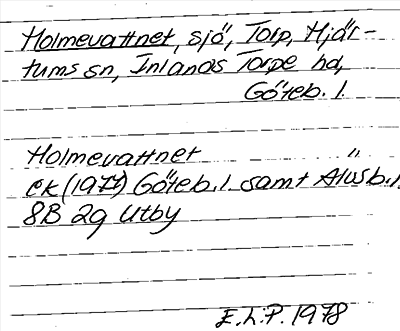 Holmevattnet, sjö, Torp, Hjär-
tums sn, Inlands Torpe hd,
Göteb. l.
Holmevattnet
ek (1977) Göteb. l samt Älvsb. l.
8B 2g Utby
E.L.P. 1978